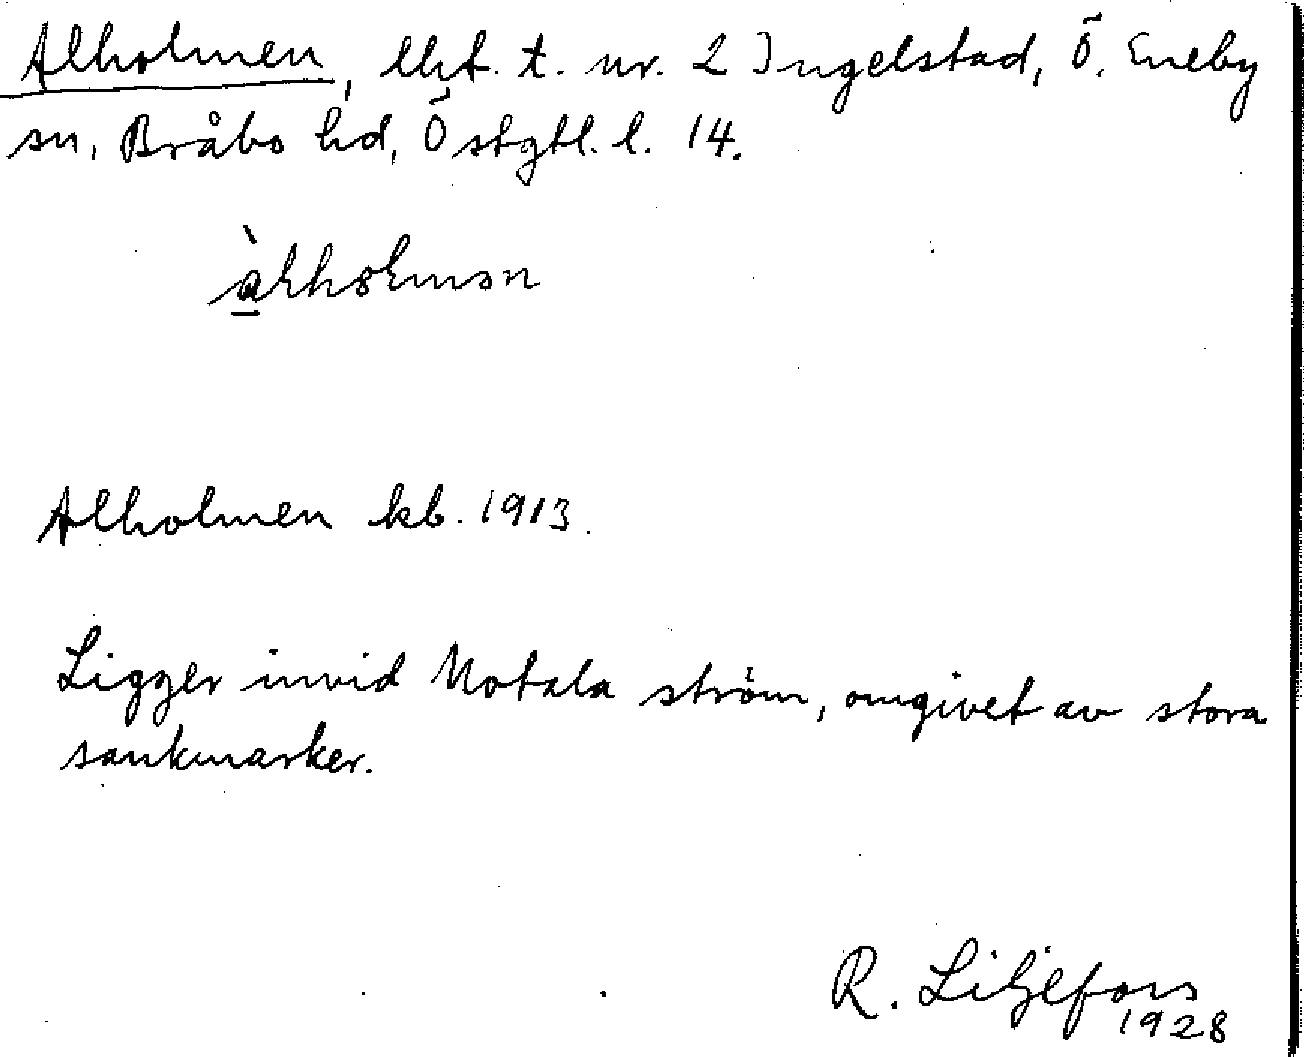 Alholmen, lht. t. nr. 2 Ingelstad, Ö. Eneby
sn, Bråbo hd, Östgtl. l. 14.
Alholmen kb. 1913.
Ligger invid Motala ström, omgivet av stora
sankmarker.
R. Liljefors
1928